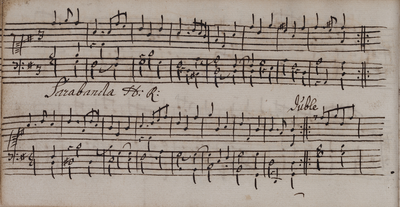 Sarabanda H: R:
Duble